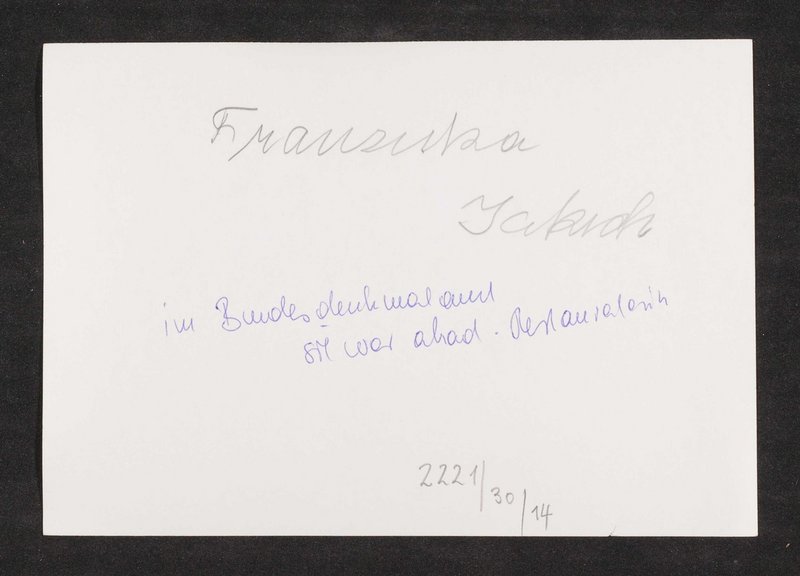 Franziska
Jakisch
im Bundesdenkmalamt
sie war akad. Restauratorin
2221/30/14